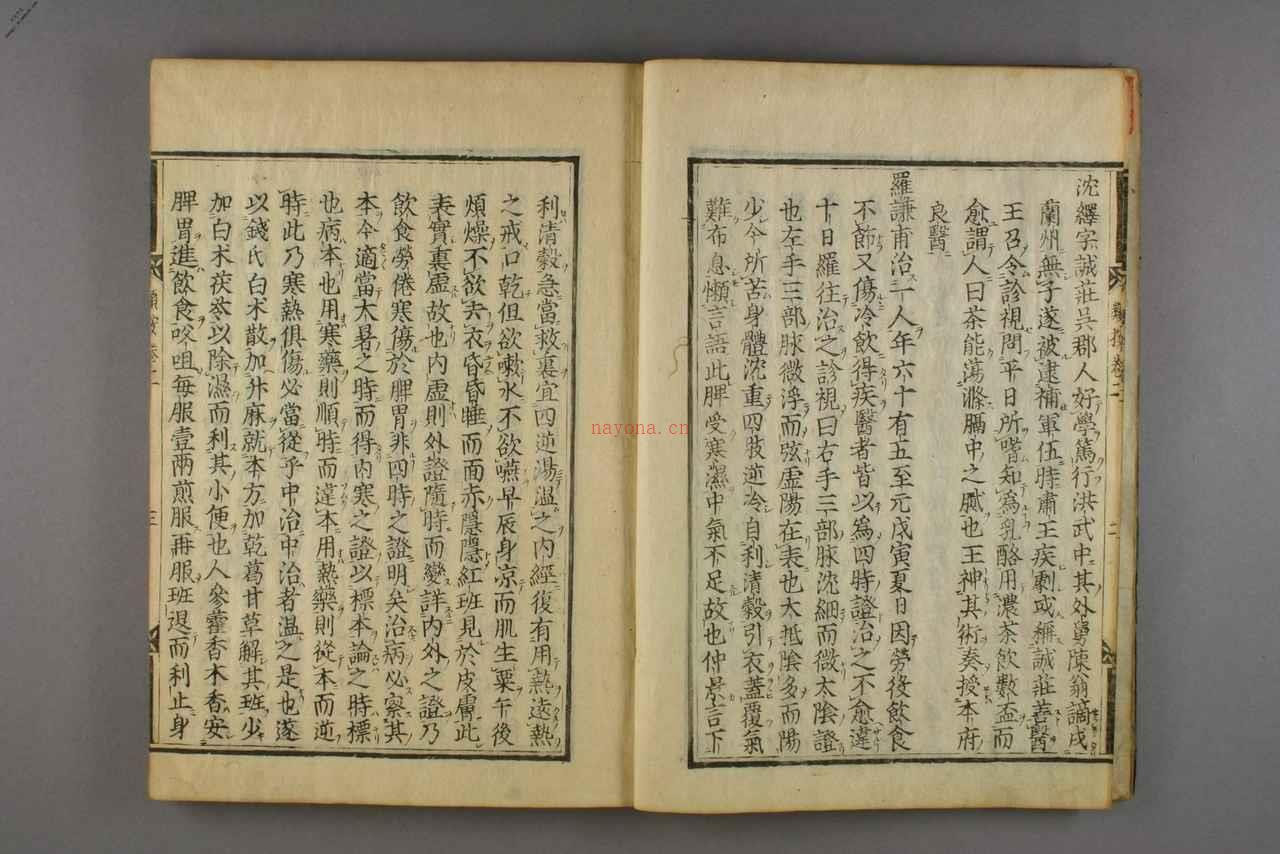 沈繹字誠莊吳郡人好學篤行洪武中其外舅陳翁謫戍
蘭州無子遂被逮補軍伍時肅王疾劇或稱誠莊善醫
王召令診視問平日所嗜知為乳酪用濃茶飲數盃而
愈謂人曰茶能蕩滌膈中之膩也王神其術奏授本府
良醫
羅謙甫治一人年六十有五至元戊寅夏日因勞役飲食
不節又傷冷飲得疾醫者皆以為四時證治之不愈違
十日羅往治之診視曰右手三部脉沈細而微太陰證
也左手三部脉微浮而弦虛陽在表也大抵陰多而陽
少今所苦身體沈重四肢逆冷自利清穀引衣蓋覆氣
難布息懶言語此脾受寒濕中氣不足故也仲景言下
利清穀急當救裏宜四逆湯溫之内經復有用熱遠熱
之戒口乾但欲嗽水不欲嚥早辰身凉而肌生粟午後
煩燥不欲去衣昏昏睡而面赤隱隱紅班見於皮膚此
表實裏虛故也内虛則外證隨時而變詳内外之證乃
飲食勞倦寒傷於脾胃非四時之證明矣治病必察其
本今適當大暑之時而得内寒之證以標本論之時標
也病本也用寒藥則順時而違本用熱藥則從本而逆
時此乃寒熱俱傷必當從乎中治中治者溫之是也遂
以錢氏白术散加升麻就本方加乾葛甘草解其班少
加白术茯苓以除濕而利其小便也人參藿香木香安
脾胃進飲食㕮咀每服壹兩煎服再服班退而利止身
類按卷二
二
三
nayona.cn